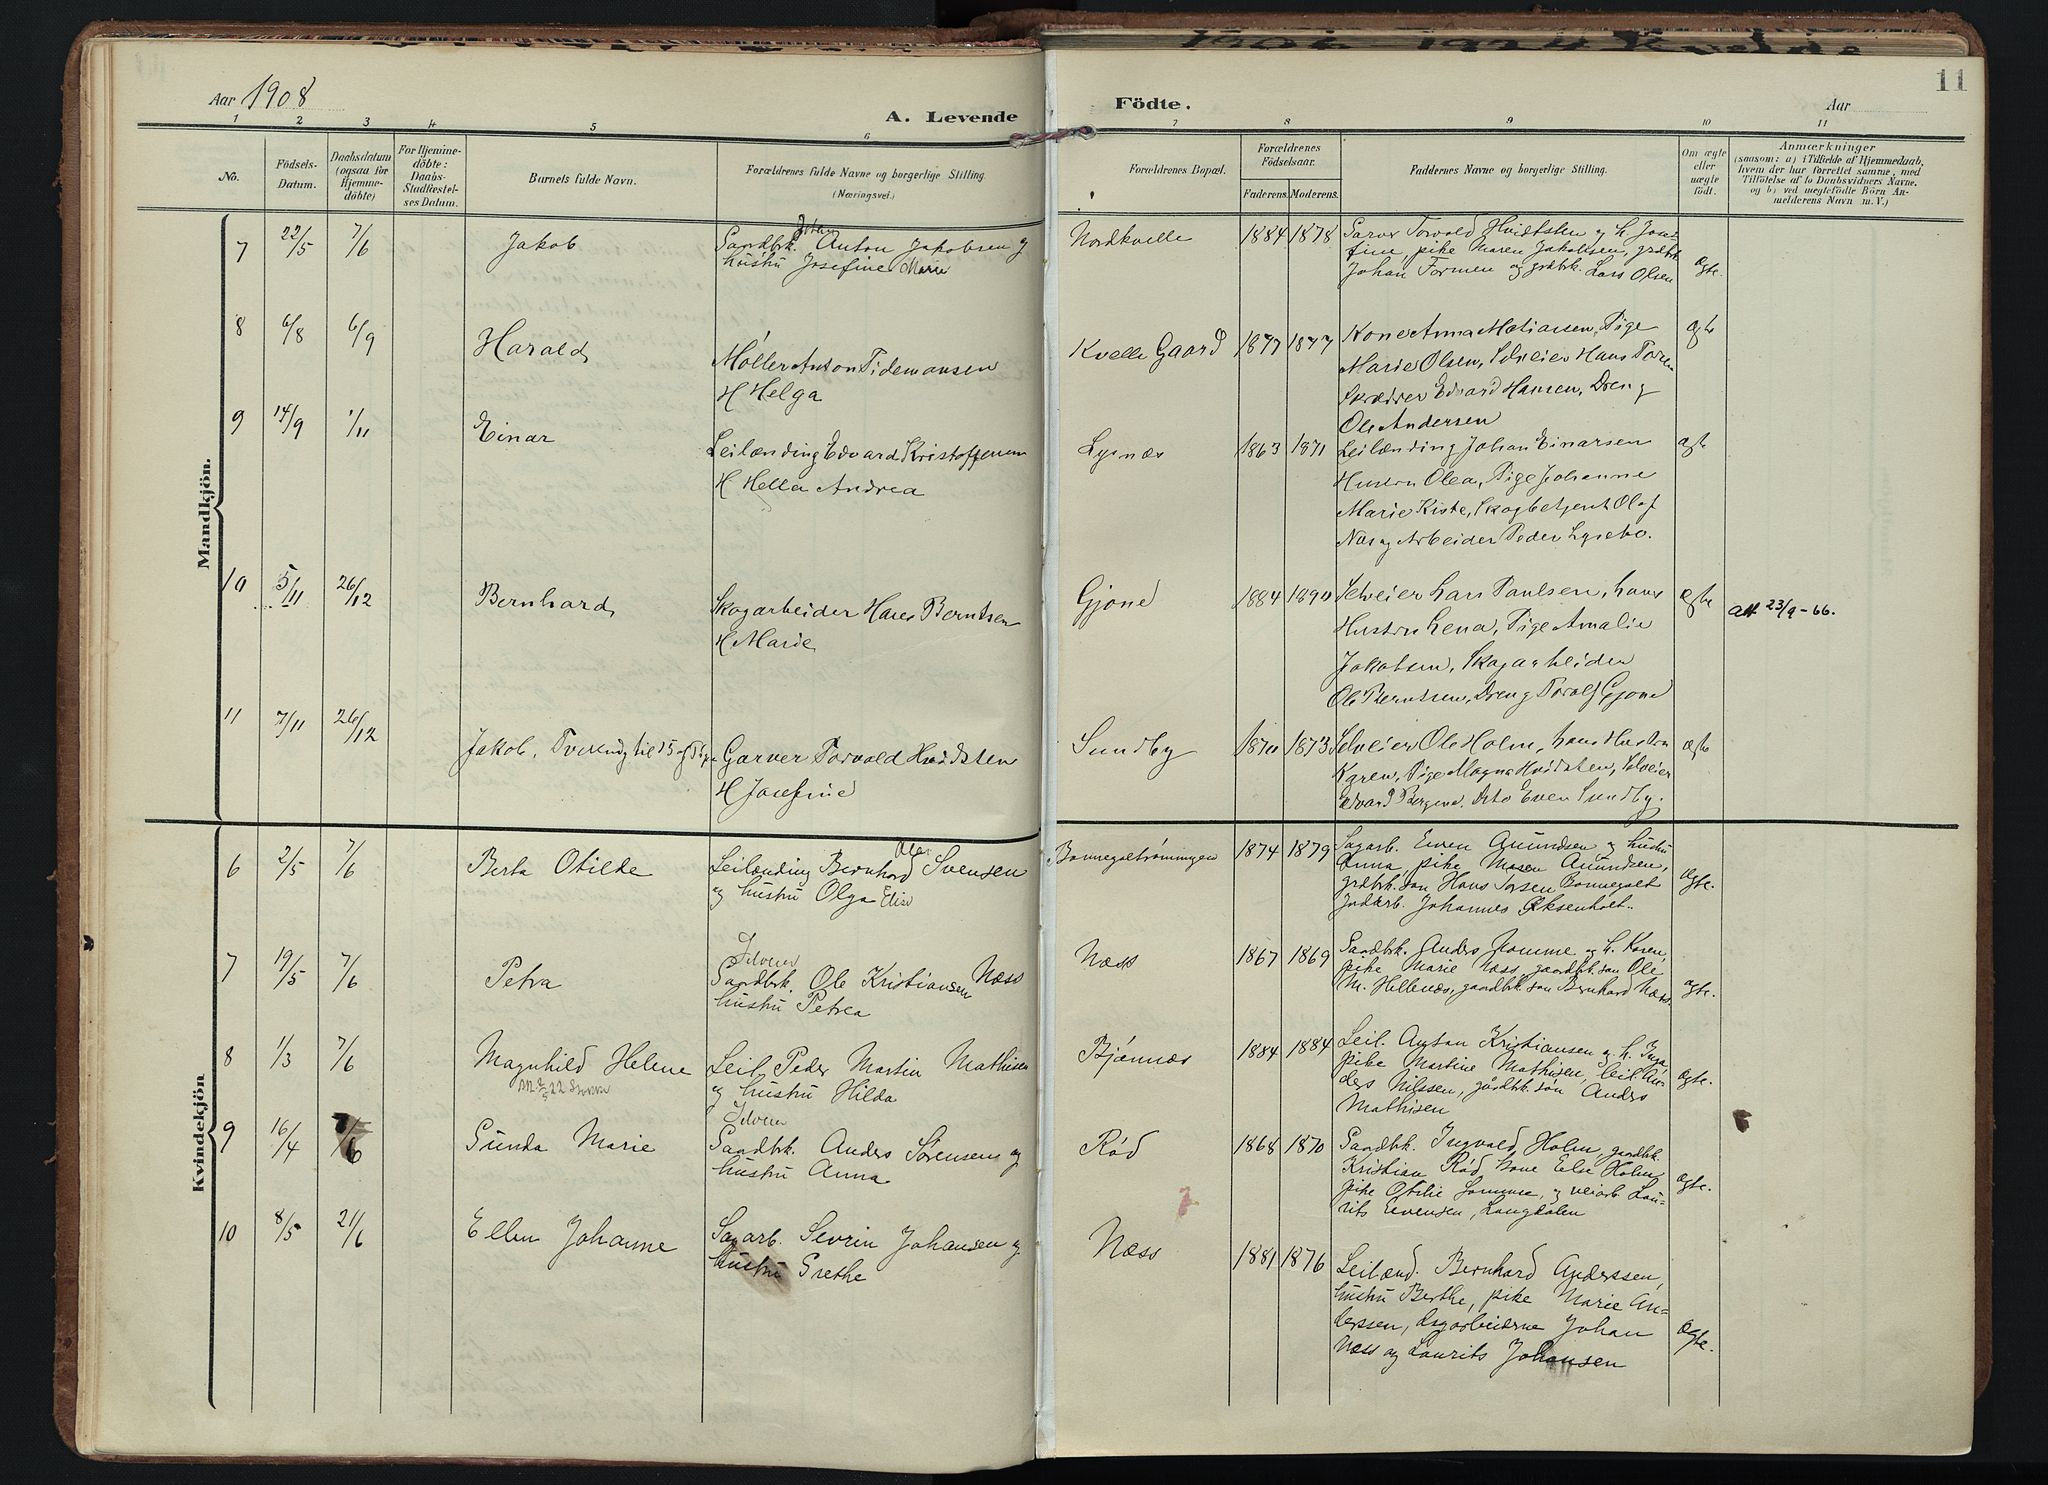 1906 - 1924 Kvelde
11
Aar 1908
A. Levende
Födte.
Aar
1 2 3 4 5 6 7 8 9 10 11
No.
Födsels-
Datum.
Daabsdatum
(ogsaa for
Hjemme-
döbte)
For Hjemme-
döbte:
Daabs-
Stadfæstel-
ses Datum.
Barnets fulde Navn.
Forældrenes fulde Navne og borgerlige Stilling.
(Næringsvei.)
Forældrenes Bopæl.
Forældrenes
Födselsaar.
Faderens.
Moderens.
Faddernes Navne og borgerlige Stilling.
Om ægte
eller
uægte
födt.
Anmærkninger
(saasom: a) i Tilfælde af Hjemmedaab,
hvem der har forrettet samme, med
Tilföielse af to Daabsvidners Navne,
og b) ved uægtefödte Börn An-
melderens Navn m. V.)
Mandkjön.
7 22/5 7/6 Jakob
Gaardbr. Anton Jakobsen og
hustru Josefine Marie
Nordkvelle 1884 1878
Garver Torvald Hvidtsten og h. Jose-
fine, pike Maren Jakobsen, grdbr.
Johan Formen og grdbr. Lars Olsen
ægte.
8 6/8 6/9 Harald
Møller Anton Tidemansen
H Helga
Kvelle Gaard 1877 1877
Kone Anna Matiassen, Pige
Marie Olsen, Selveier Hans Toren
Skrædder Edvard Hansen, Dreng
Ole Andersen
ægte
9 14/9 1/11 Einar
Leilænding Edvard Kristoffersen
H Hella Andrea
Lysnæs 1863 1871
Leilænding Johan Einarsen
Hustru Olea, Pige Johanne
Marie Kiste, Skogbetjent Olaf
Næs og Arbeider Peder Lysebo.
ægte
10 5/11 26/12 Bernhard
Skogarbeider Hans Berntsen
H Marie
Gjone 1884 1890
Selveier Lars Paulsen, hans
Hustru Lena, Pige Amalie
Jakobsen, Skogarbeider
Ole Berntsen, Dreng Toralf Gjone
ægte
att 23/9-66.
11 7/11 26/12 Jakob, Tvilling til 15 af Piger
Garver Torvald Hvidsten
H Josefine
Sundby 1870 1873
Selveier Ole Holm, hans Hustru
Karen, Pige Magna Hvidsten, Selveier
Edvard Bergene. Dito Even Sundby.
ægte
Kvindekjön
6 2/5 7/6 Berta Otilde
Leilænding Bernhard Olai Svensen
og hustru Olga Elise
Bonnegoltrømingen 1874 1879
Sagarb. Even Amundsen og hustru
Anna, pike Maren Amundsen,
grdbr. søn Hans Torsen Bonnegolt
Jndarb. Johannes Øksenholt.
ægte.
7 19/5 7/6 Petra
Selveier
Gaardbr. Ole Kristiansen Næss
hustru Petrea
Næss 1867 1869
Gaardbr. Anders Homme og h. Karen,
pike Marie Næss, gaardbr. søn Ole
M. Hellenæs, gaardbr. søn Bernhard Næss.
ægte.
8 1/3 7/6 Magnhild Helene
Leil. Peder Martin Mathisen
og hustru Hilda
Bjønnæs 1884 1884
Leil. Anton Kristiansen og h. Inga,
pike Martine Mathisen, leil. An-
ders Nilssen, gårdbr. søn Anders
Mathisen
ægte.
9 16/4 7/6 Gunda Marie
Selveier
Gaardbr. Anders Sørensen og
hustru Anna
Rød 1868 1870
Gaardbr. Ingvald Holm, gaardbr.
Kristian Rød, kone Else Holm,
pike Otilie Homme, og veiarb. Lau-
rits Evensen, Langdalen
ægte.
10 8/5 21/6 Ellen Johanne
Sagarb. Sevrin Johansen og
hustru Grethe
Næss 1881 1876
Leilænd. Bernhard Anderssen,
hustru Berthe, pike Marie An-
derssen, dagarbeiderne Johan
Næss og Laurits Johansen
ægte.